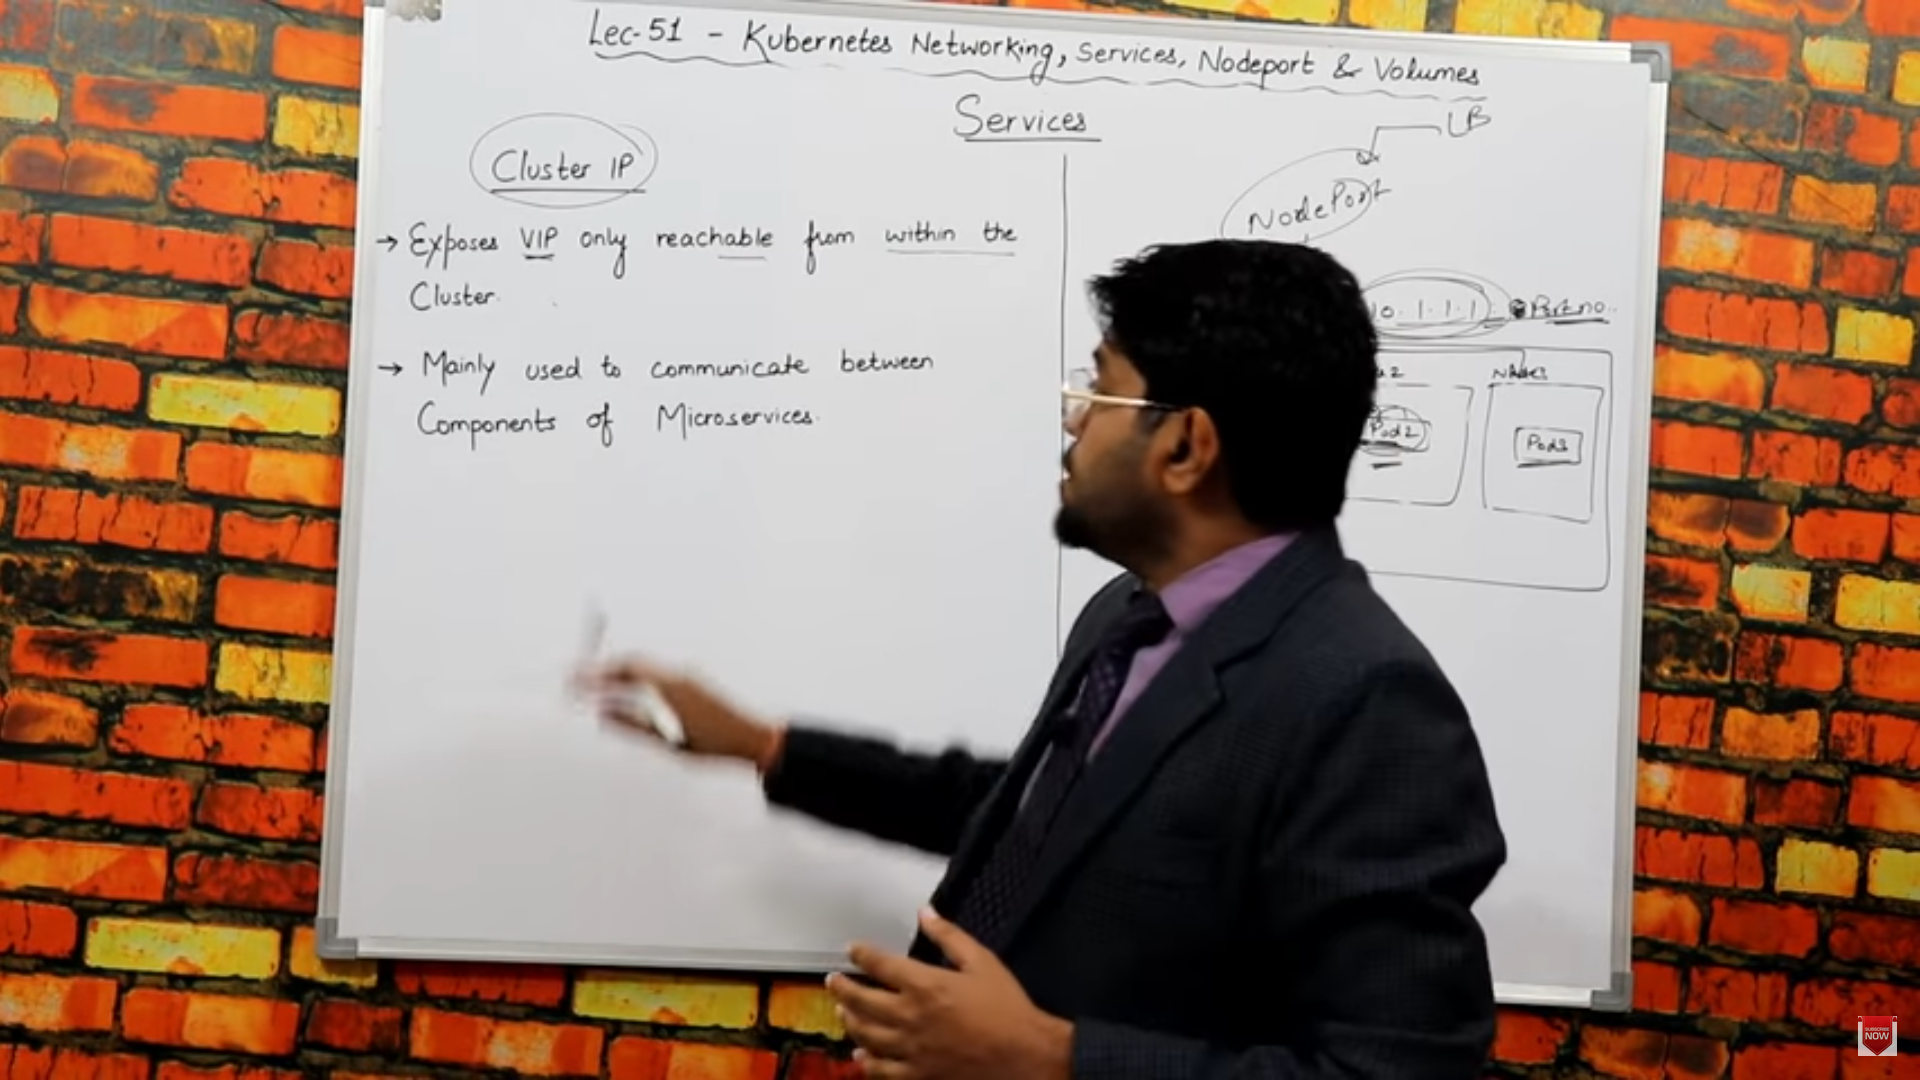 Lec-51 - Kubernetes Networking, Services, Nodeport & Volumes
Services
Cluster IP
→ Exposes VIP only reachable from within the
Cluster.
→ Mainly used to communicate between
Components of Microservices.
LB
NodePort
10.1.1.1 Port no.
Pod2
Pod3
SUBSCRIBE
NOW